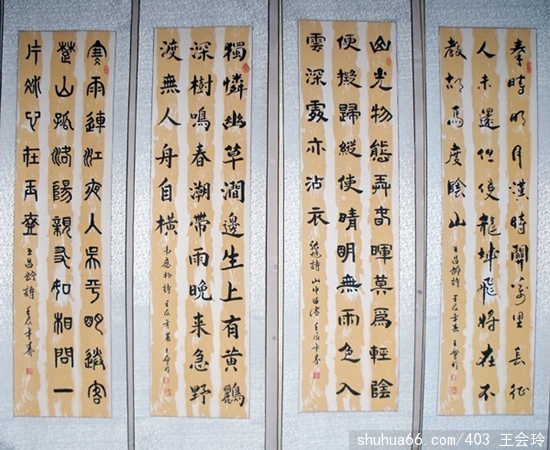 秦時明月漢時關萬里長征
人未還但使龍城飛將在不
教胡馬度陰山
王昌齡詩 壬辰年春
山光物態弄春暉莫爲輕陰
便擬歸縱使晴明無雨色入
雲深處亦沾衣
張旭詩 山中留客 壬辰年春
獨憐幽草澗邊生上有黃鸝
深樹鳴春潮帶雨晚來急野
渡無人舟自橫
韋應物詩 壬辰年春
寒雨連江夜入吳平明送客
楚山孤洛陽親友如相問一
片冰心在玉壺
王昌齡詩 壬辰年春
shuhua66.com/403 王会玲